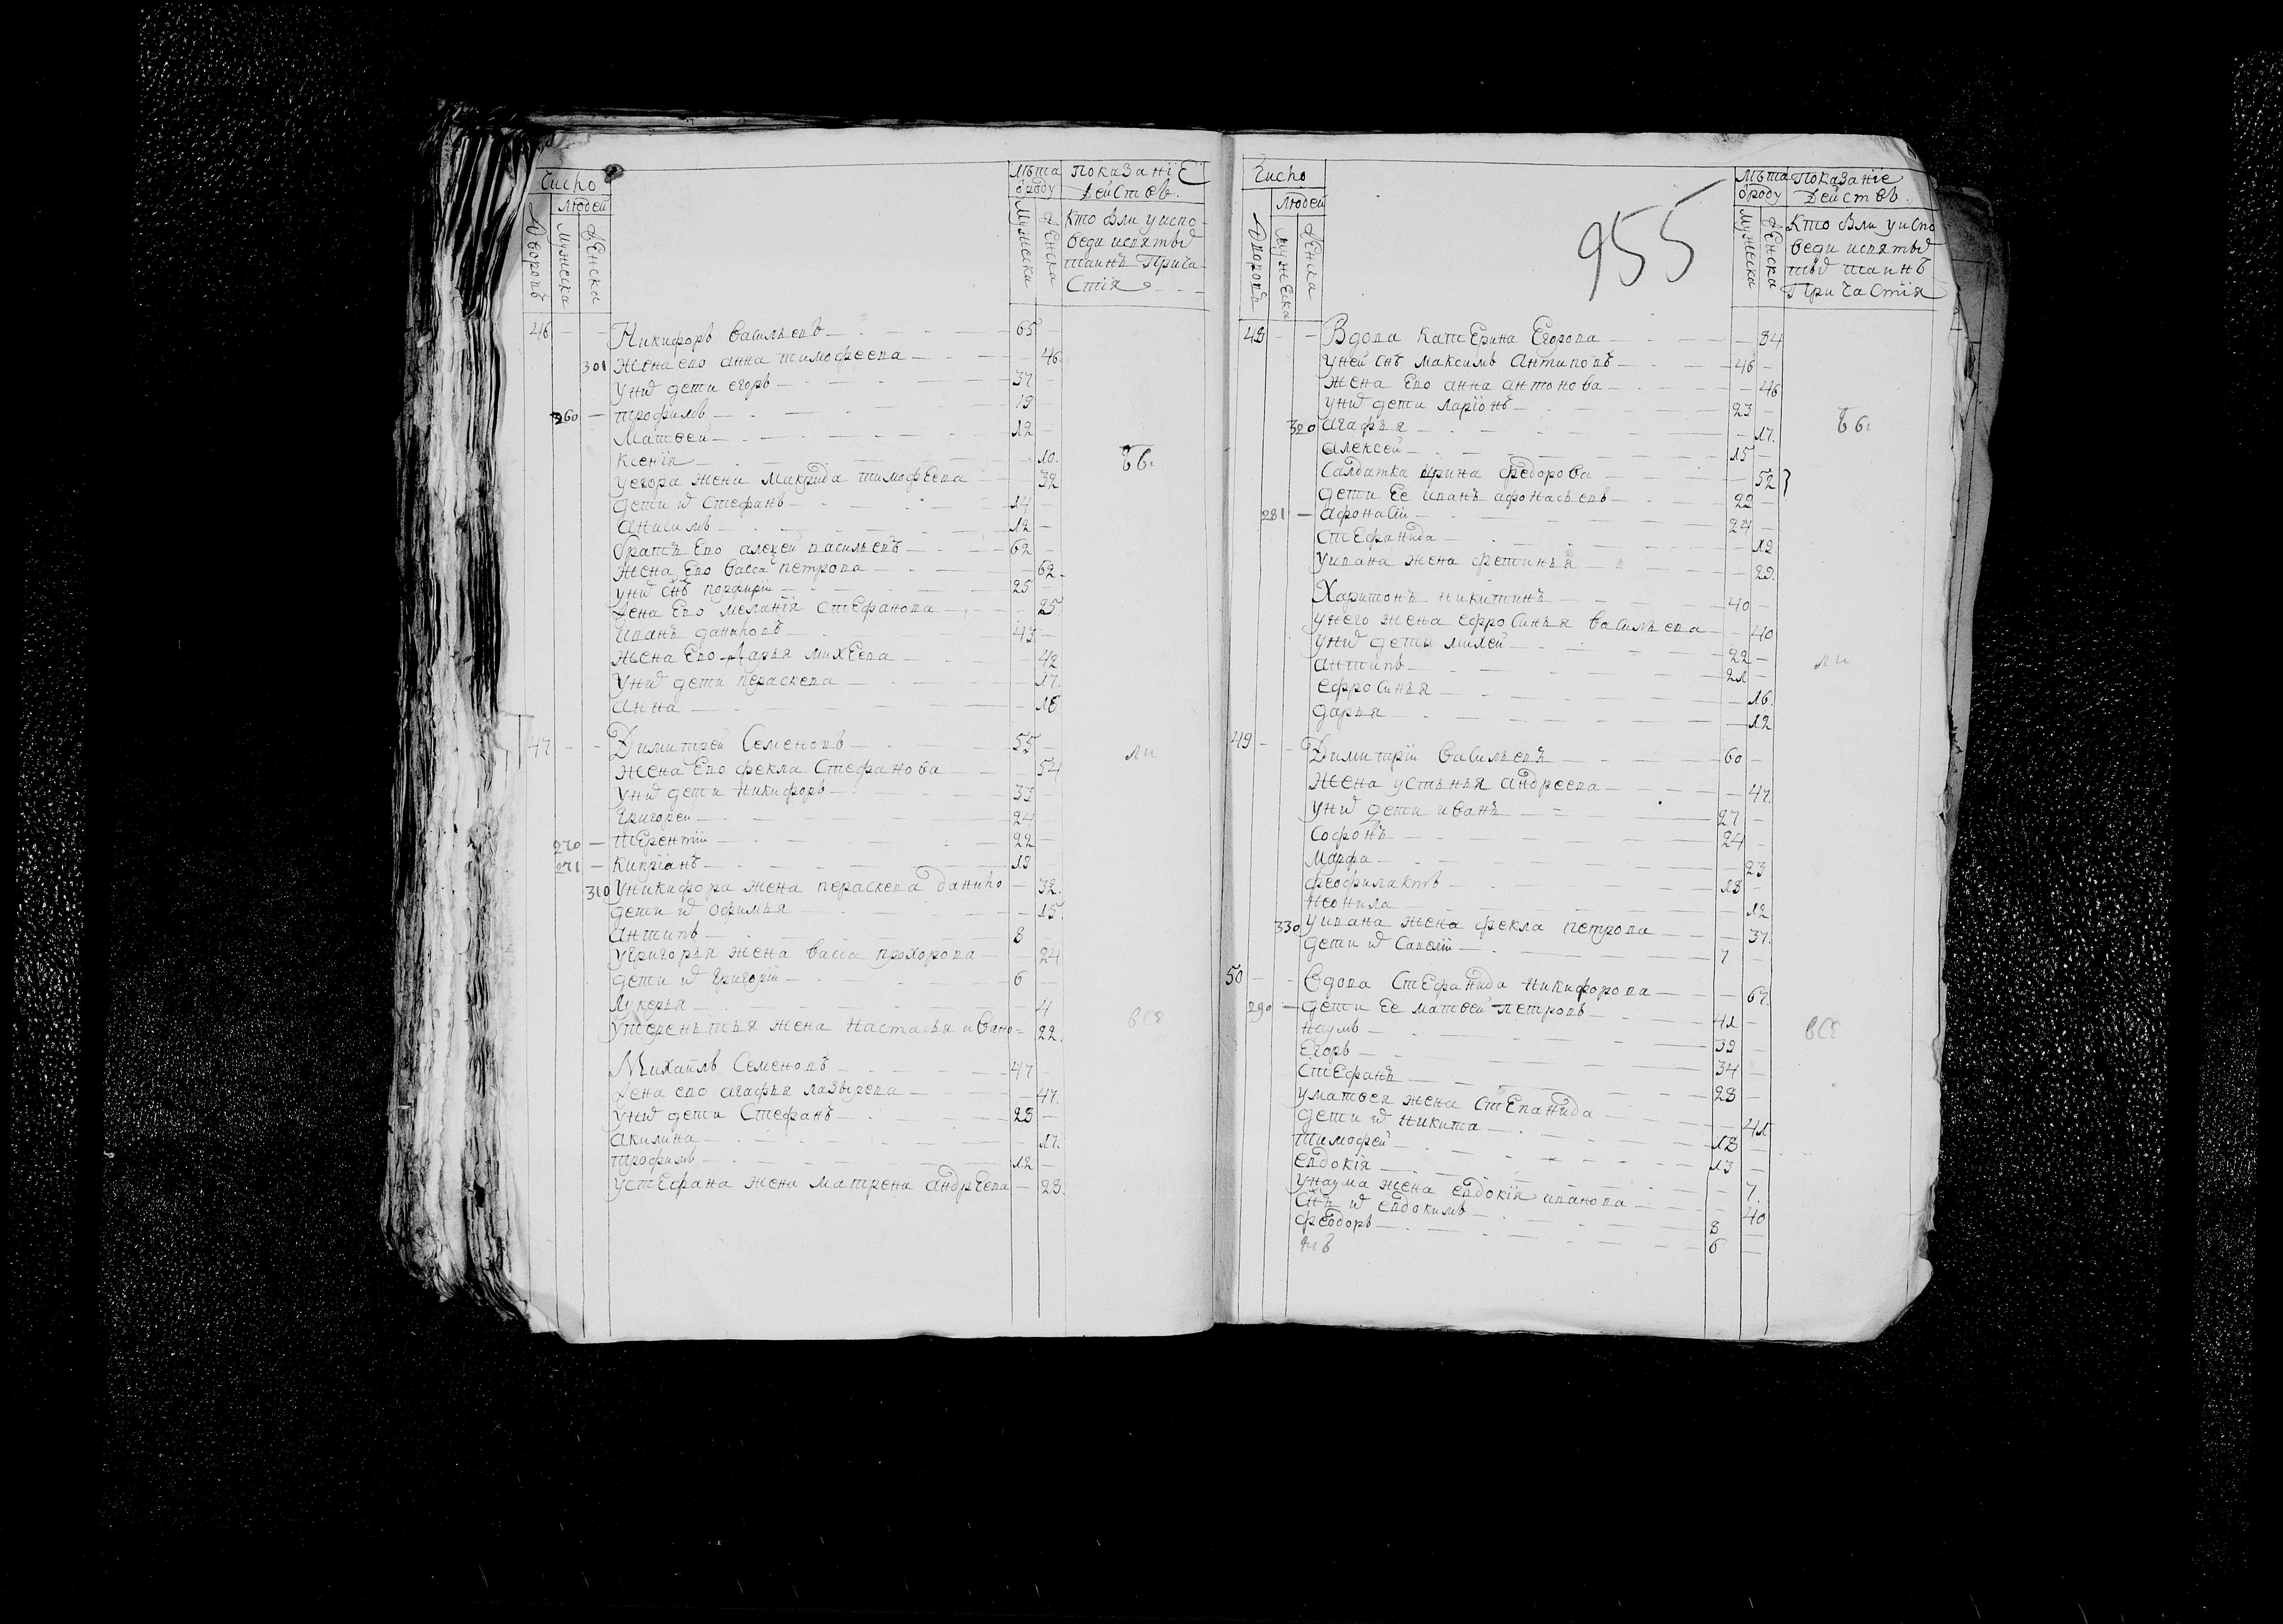 Число
Людей
Дворовъ
Мужеска
Женска
Лѣта
ѿроду
Мужеска
Женска
Показанїе
Действъ
Кто былъ уиспо
веди исвятыхъ
таинъ Прича
стія
46 Никифоръ Васильевъ 65
301 Жена ево анна тимофеева 46
унихъ дети егоръ 37
260 трофимъ 19
Матвей 12
Ксенїя 10
уегора жена Макрида тимофеева 32
дети ихъ Стефанъ 14
Анисимъ 12
братъ Ево алексей васильевъ 62
Жена Ево васса петрова 62
унихъ снъ порфирїй 25
Жена Ево меланїя Стефанова 25
Иванъ даниловъ 43
Жена Ево дарья михеева 42
Унихъ дети пераскева 17
Анна 16
Бы
47 Димитрей Семеновъ 55
Жена Ево фекла Стефанова 54
Унихъ дети никифоръ 33
Григорей 24
270 терентїй 22
271 Кипрїанъ 19
310 Уникифора жена пераскева данило 32
дети ихъ офимья 15
Антипъ 8
Угригорья жена васса прохорова 24
дети ихъ григорїй 6
Лукерья 4
Утеренътья жена настасья ивано 22
Михайлъ Семеновъ 47
Жена ево агафья лазырева 47
Унихъ дети Стефанъ 23
Акилина 17
трофимъ 12
устефана жена матрена андреева 23
ли
все
955
Число
Людей
Дворовъ
Мужеска
Женска
Лѣта
ѿроду
Мужеска
Женска
Показанїе
Действъ
Кто былъ уиспо
веди исвятыхъ
таинъ
Причастїя
48 Вдова Катерина Егорова 84
Уней снъ максимъ Антиповъ 46
Жена Ево анна антонова 46
Унихъ дети Ларїонъ 23
320 агафья 17
Алексей 15
Салдатка ирина федорова 52
дети Ее иванъ афонасьевъ 22
281 Афонасїй 24
Стефанида 12
Уивана жена фетинья 29
Харитонъ никитинъ 40
Унего жена ефросинья васильева 40
Унихъ дети михей 22
Антипъ 21
Ефросинья 16
дарья 12
Бы
ли
49 Димитрїй васильевъ 60
Жена устинья андреева 47
Унихъ дети иванъ 27
Софонъ 24
Марфа 23
феофилактъ 18
Неонила 12
330 Уивана жена фекла петрова 37
дети ихъ Савелїй 7
50 Вдова Стефанида никифорова 67
290 дети Ее матвей петровъ 41
наумъ 39
Егоръ 34
Стефанъ 28
Уматвея жена Степанида 41
дети ихъ никита 18
тимофей 13
евдокїя 7
Унаума жена евдокїя иванова 40
снъ ихъ евдокимъ 8
феодоръ 6
все